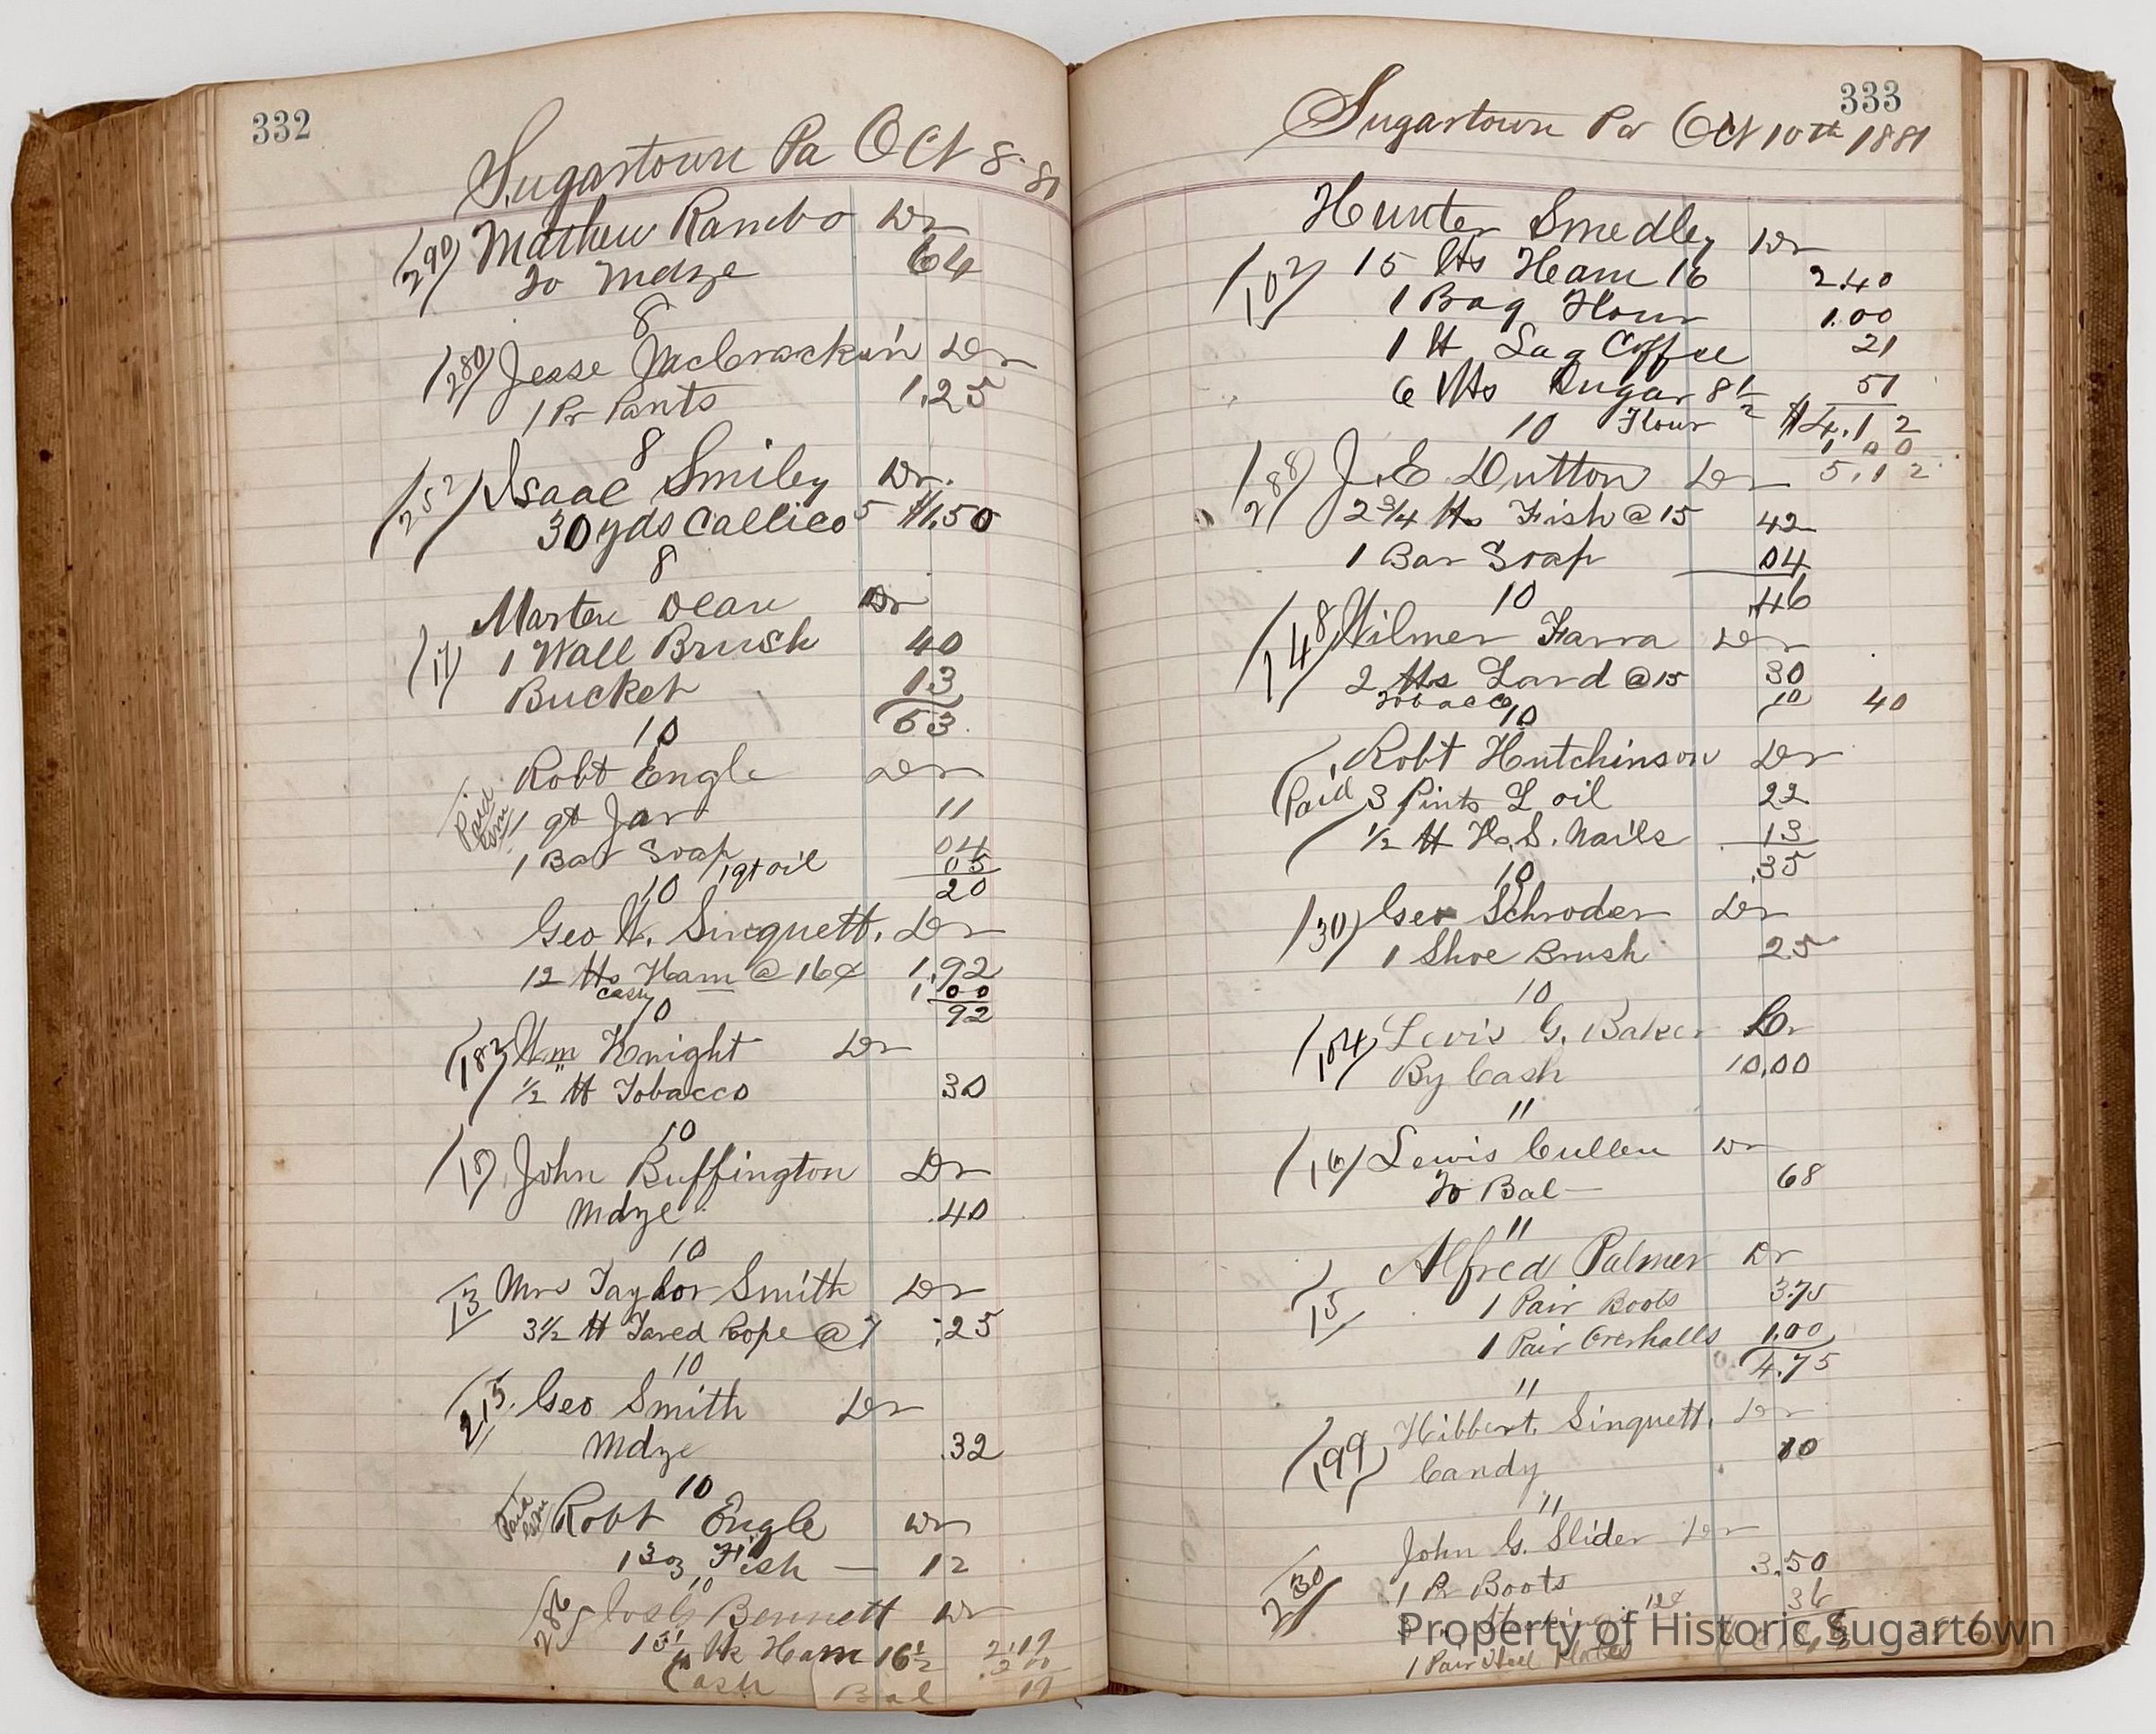 332
Sugartown Pa Oct 8 81
290 Mathew Rambo Dr
To Mdze 64
8
280 Jesse McCrackin Dr
1 Pr Pants 1.25
8
252 Isaac Smiley Dr.
30 yds Callico 5 $1.50
8
Marten Dean Dr
17 1 Wall Brush 40
Bucket 13
53.
10
Robt Engle Dr
Paid
1 qt Jar 11
1 Bar Soap 04
1 qt oil 05
10 20
Geo W. Singuett. Dr
12 lbs Ham @ 16¢ 1.92
Cash 1.00
10 92
183 Wm Knight Dr
1/2 lb Tobacco 30
10
John Buffington Dr
Mdze .40
10
13 Mrs Taylor Smith Dr
3 1/2 lb Tared Rope @ 7 .25
10
215. Geo Smith Dr
Mdze .32
10
Paid Robt Engle Dr
Fish — 12
10
286 Bennett Dr
Ham 16 1/2 2.19
Cash 2 00
Bal 19
333
Sugartown Pa Oct 10th 1881
Hunter Smedley Dr
102 15 lbs Ham 16 2.40
1 Bag Flour 1.00
1 lb Lag Coffee 21
6 lbs Sugar 8 1/2 51
10 $4.12
Flour 1 00
5.12
288 J. E. Dutton Dr
2 3/4 lbs Fish @ 15 42
1 Bar Soap 04
10 .46
148 Wilmer Farra Dr
2 lbs Lard @ 15 30
Tobacco 10 40
10
Robt Hutchinson Dr
Paid 3 Pints L oil 22
1/2 lb H. S. Nails 13
10 .35
130 Geo Schroder Dr
1 Shoe Brush 25
10
104 Levis G. Baker Cr
By Cash 10.00
"
16 Lewis Cullen Dr
To Bal — 68
"
Alfred Palmer Dr
15 1 Pair Boots 3.75
1 Pair Overhalls 1.00
4.75
"
Hibbert. Singuett. Dr
199 Candy 10
"
John G. Slider Dr
230 1 Pr Boots 3.50
12¢ 36
1 Pair Heel Plates
Property of Historic Sugartown